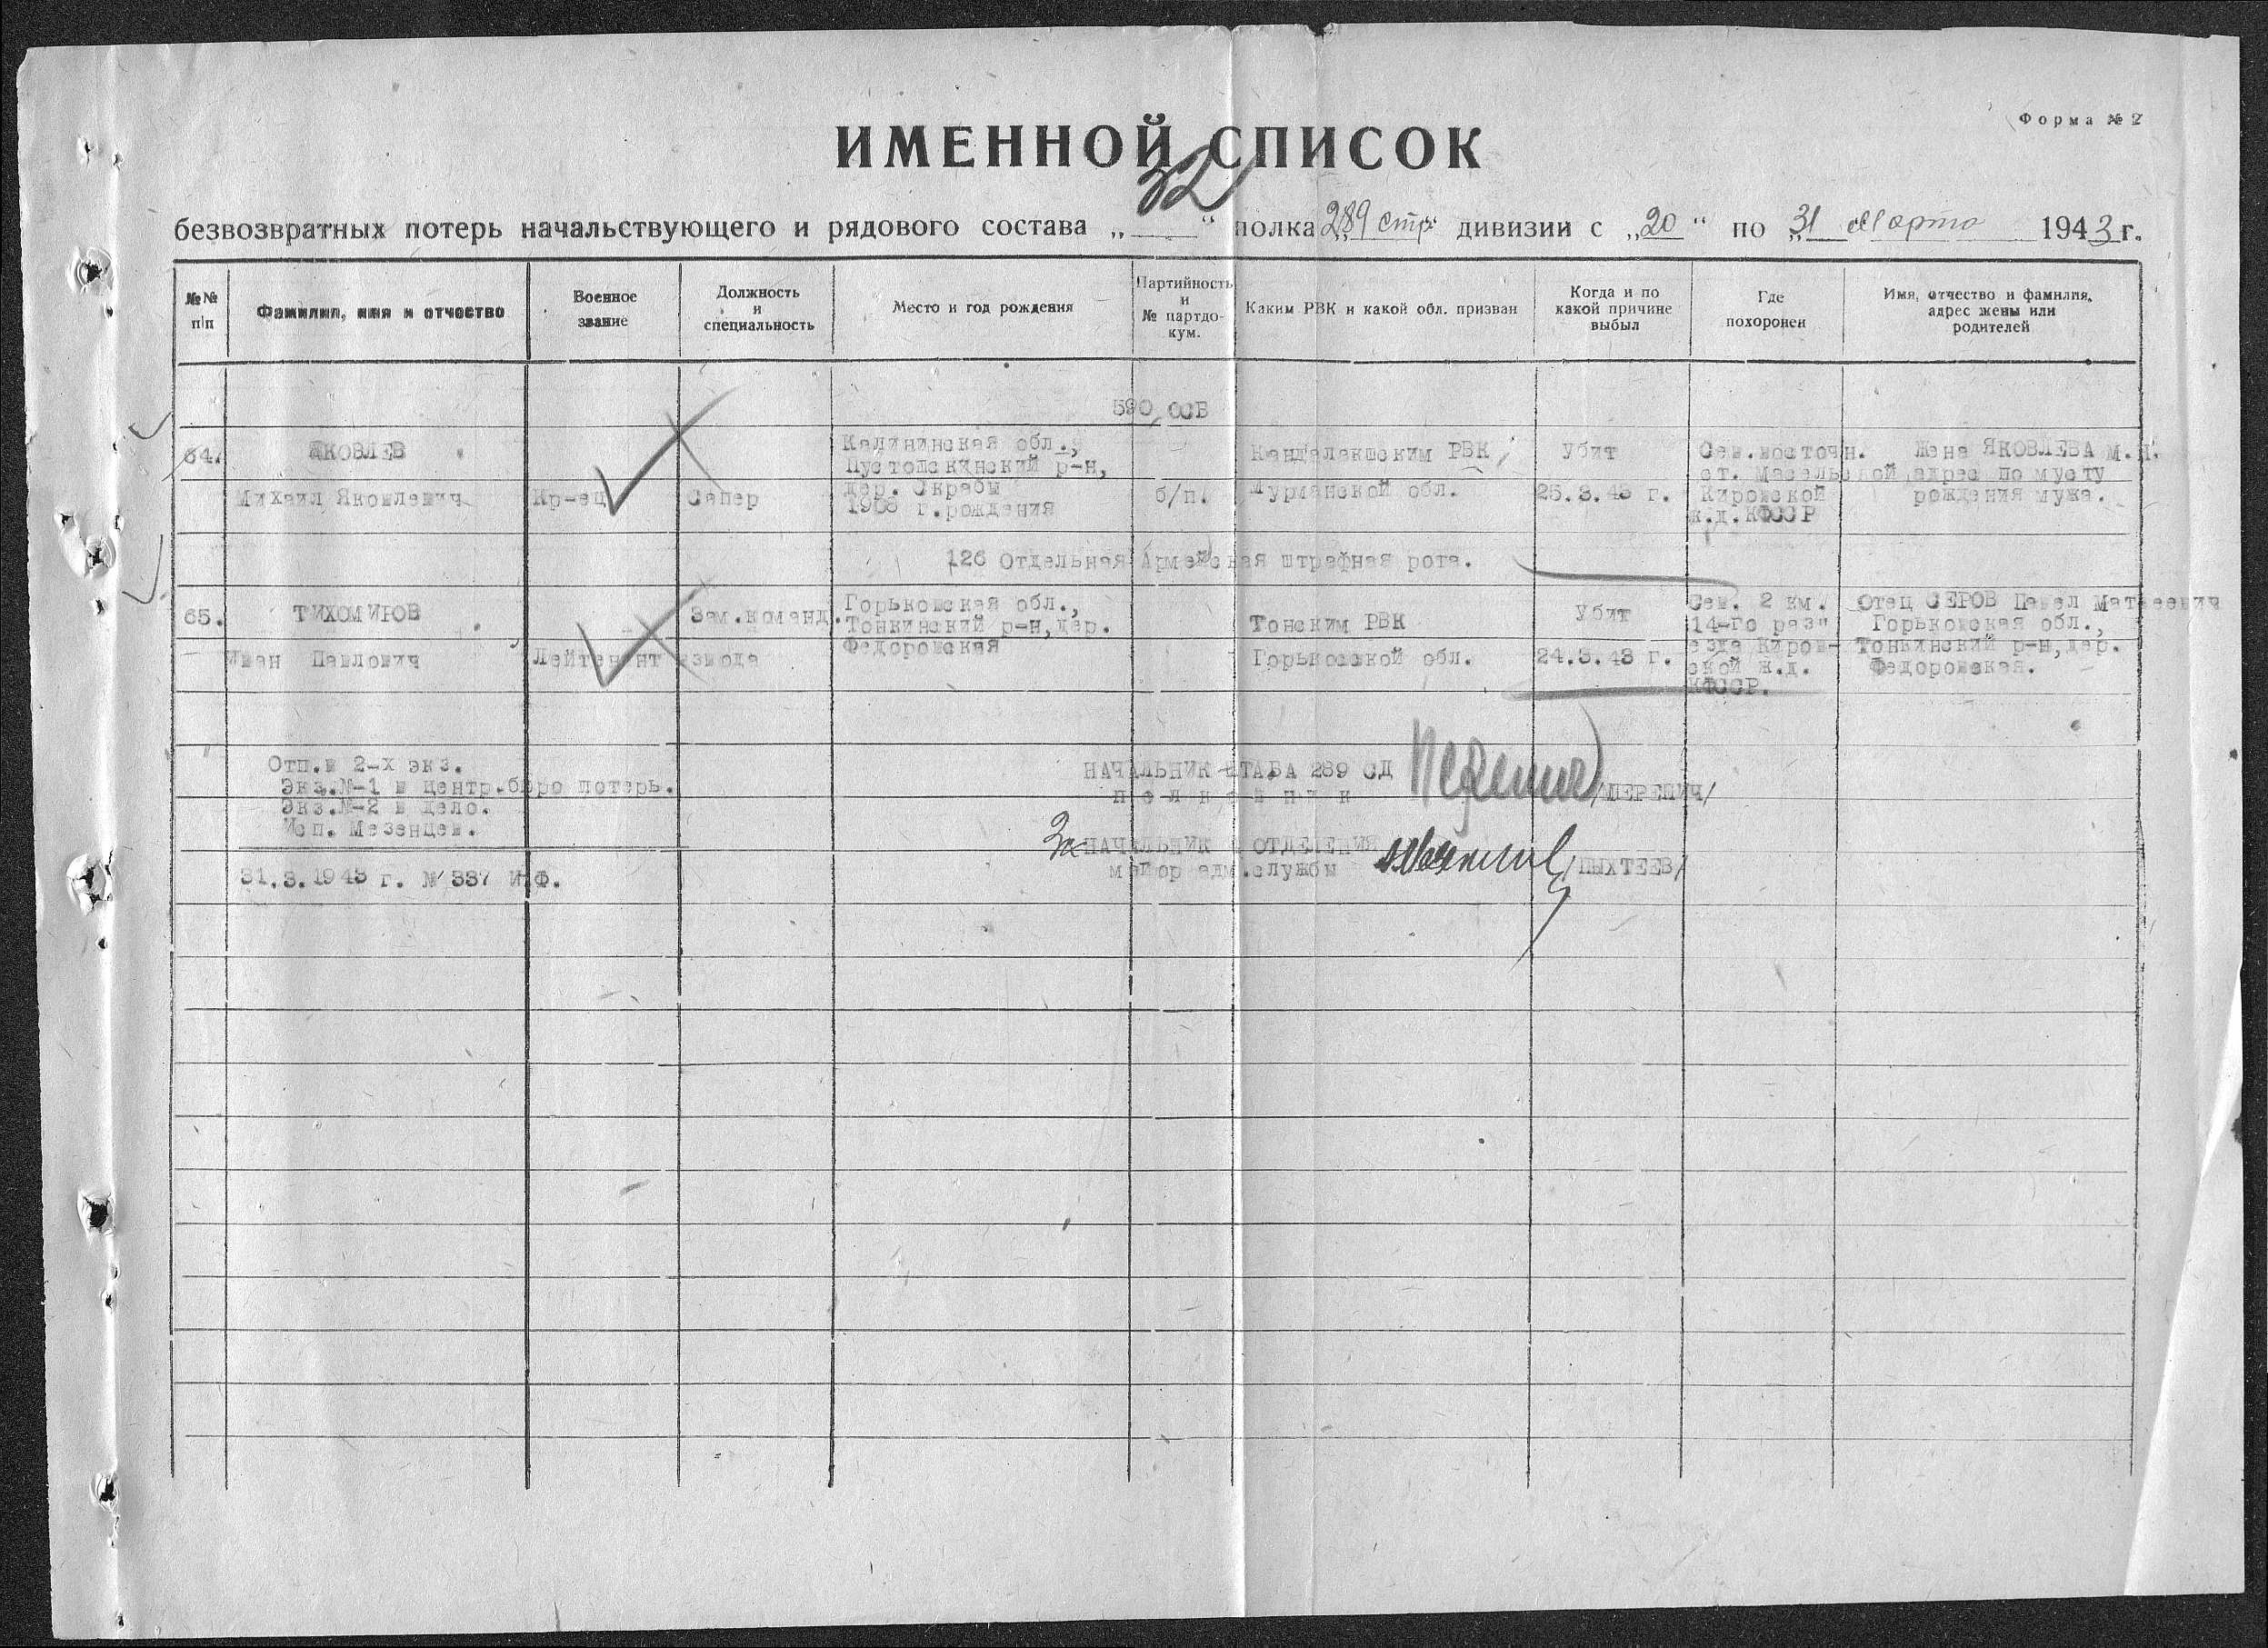 Форма № 2
ИМЕННОЙ СПИСОК
32
безвозвратных потерь начальствующего и рядового состава „ “ полка 289 стр. дивизии с „20“ по „31 марта 1943 г.
№№ п/п
Фамилия, имя и отчество
Военное звание
Должность и специальность
Место и год рождения
Партийность и № партдокум.
Каким РВК и какой обл. призван
Когда и по какой причине выбыл
Где похоронен
Имя, отчество и фамилия, адрес жены или родителей
590 ОСБ
64.
ЯКОВЛЕВ
Михаил Яковлевич
Кр-ец
Сапер
Калининская обл.,
Пустошкинский р-н,
дер. Скрабы
1908 г.рождения
б/п.
Кандалакшским РВК
Мурманской обл.
Убит
25.3.43 г.
Сев.восточн.
ст. Масельской
Кировской
ж.д.КФССР
Жена ЯКОВЛЕВА М.
адрес по месту
рождения мужа.
126 Отдельная Армейская штрафная рота.
65.
ТИХОМИРОВ
Иван Павлович
Лейтенант
Зам.команд.
взвода
Горьковская обл.,
Тонкинский р-н,дер.
Федоровская
Тонским РВК
Горьковской обл.
Убит
24.3.43 г.
Сев. 2 км.
14-го разъ
езда Киров-
ской ж.д.
КФССР.
Отец СЕРОВ Павел Матвеевич
Горьковская обл.,
Тонкинский р-н,дер.
Федоровская.
Отп.в 2-х экз.
Экз.№-1 в центр.бюро потерь.
Экз.№-2 в дело.
Исп. Мезенцев.
31.3.1943 г. № 337 И.Ф.
НАЧАЛЬНИК ШТАБА 289 СД
полковник
/ПЕРЕПИЧ/
За НАЧАЛЬНИК ОТДЕЛЕНИЯ
майор адм.службы
/ПЫХТЕЕВ/